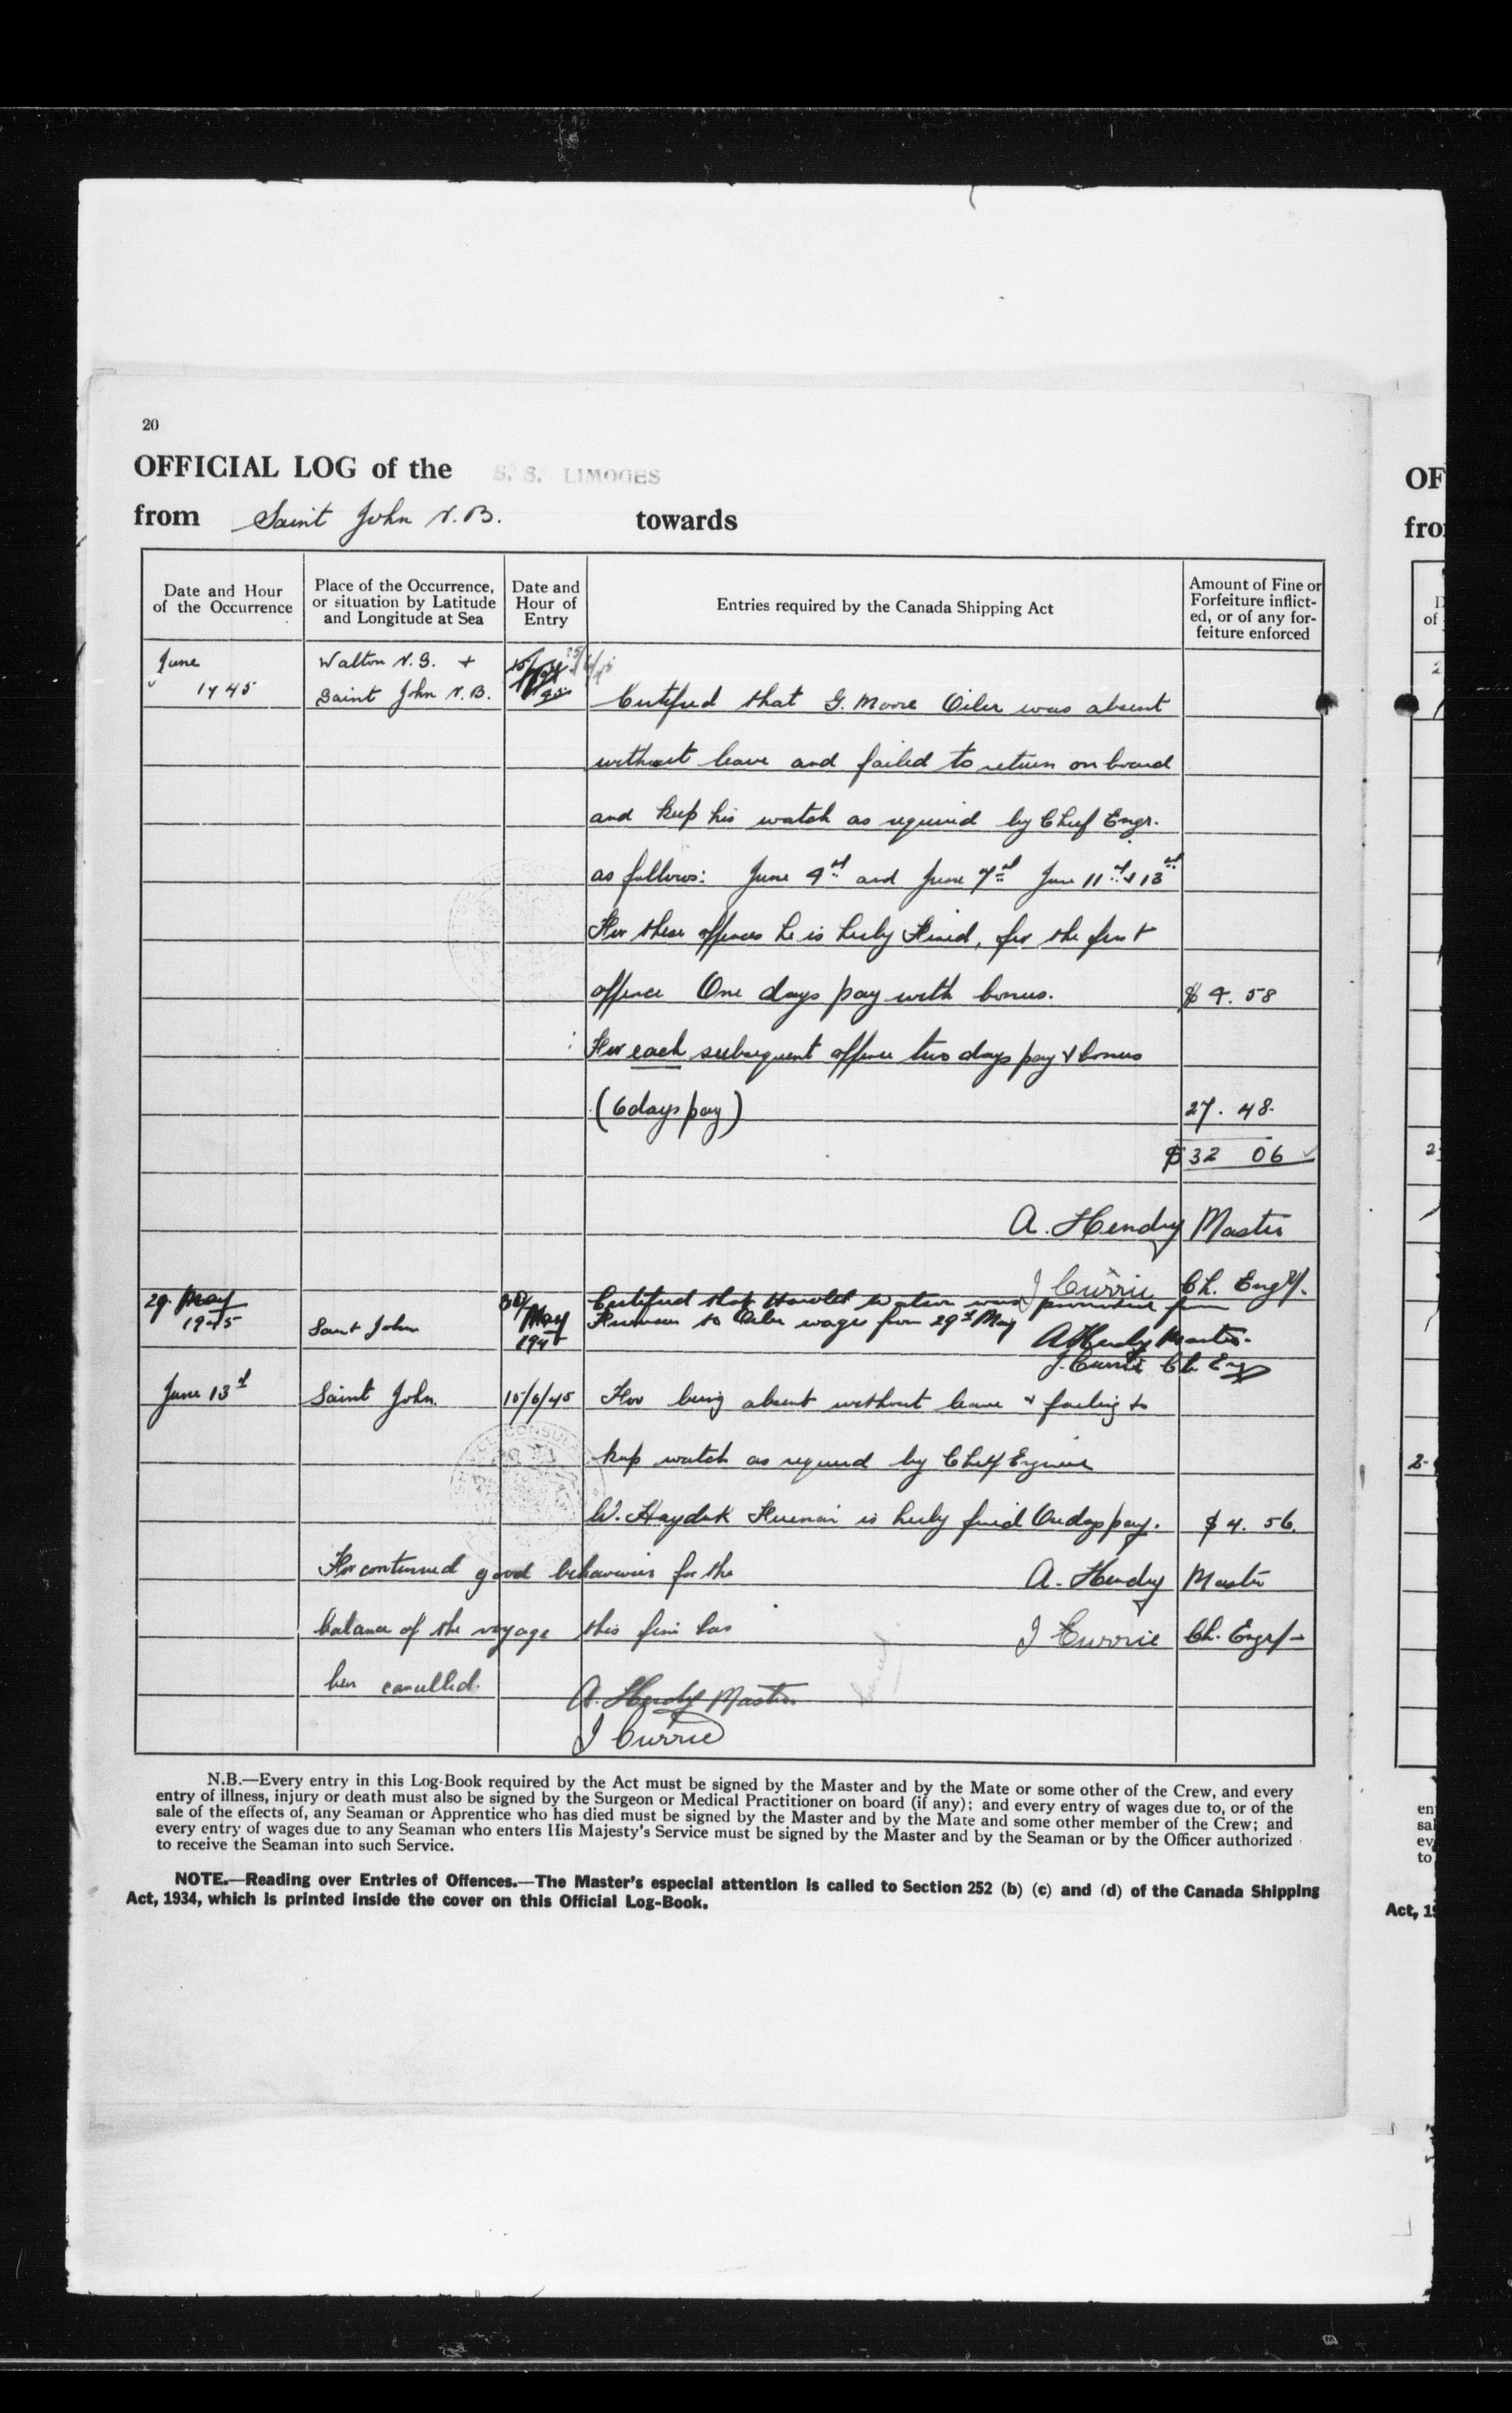 20
OFFICIAL LOG of the S. S. LIMOGES
from Saint John N.B. towards
Date and Hour of the Occurrence
Place of the Occurrence, or situation by Latitude and Longitude at Sea
Date and Hour of Entry
Entries required by the Canada Shipping Act
Amount of Fine or Forfeiture inflicted, or of any forfeiture enforced
June Walton N.S. +
1945 Saint John N.B.
Certified that G. Moore Oiler was absent
without leave and failed to return on board
and keep his watch as required by Chief Engr.
as follows: June 4th and June 7th June 11th & 13th
For these offences he is hereby Fined, for the first
offence One days pay with bonus. $ 4. 58
For each subsequent offence two days pay & bonus
(6 days pay) 27. 48
$ 32 06
A. Hendry Master
J Currie Ch. Engr.
29. May 30/ Certified that was promoted from
1945 Saint John May Fireman to Oiler wages from 29th May
194 A Hendry Master.
J. Currie Ch. Eng
June 13th Saint John. 15/6/45 For being absent without leave & failing to
keep watch as required by Chief Engineer
W. Hayduk Fireman is hereby fined One days pay. $ 4. 56.
For continued good behaviour for the A. Hendry Master
balance of the voyage this fine has J Currie Ch. Engr
been cancelled. A. Hendry Master
J Currie
N.B.—Every entry in this Log-Book required by the Act must be signed by the Master and by the Mate or some other of the Crew, and every
entry of illness, injury or death must also be signed by the Surgeon or Medical Practitioner on board (if any); and every entry of wages due to, or of the
sale of the effects of, any Seaman or Apprentice who has died must be signed by the Master and by the Mate and some other member of the Crew; and
every entry of wages due to any Seaman who enters His Majesty's Service must be signed by the Master and by the Seaman or by the Officer authorized
to receive the Seaman into such Service.
NOTE.—Reading over Entries of Offences.—The Master's especial attention is called to Section 252 (b) (c) and (d) of the Canada Shipping
Act, 1934, which is printed inside the cover on this Official Log-Book.